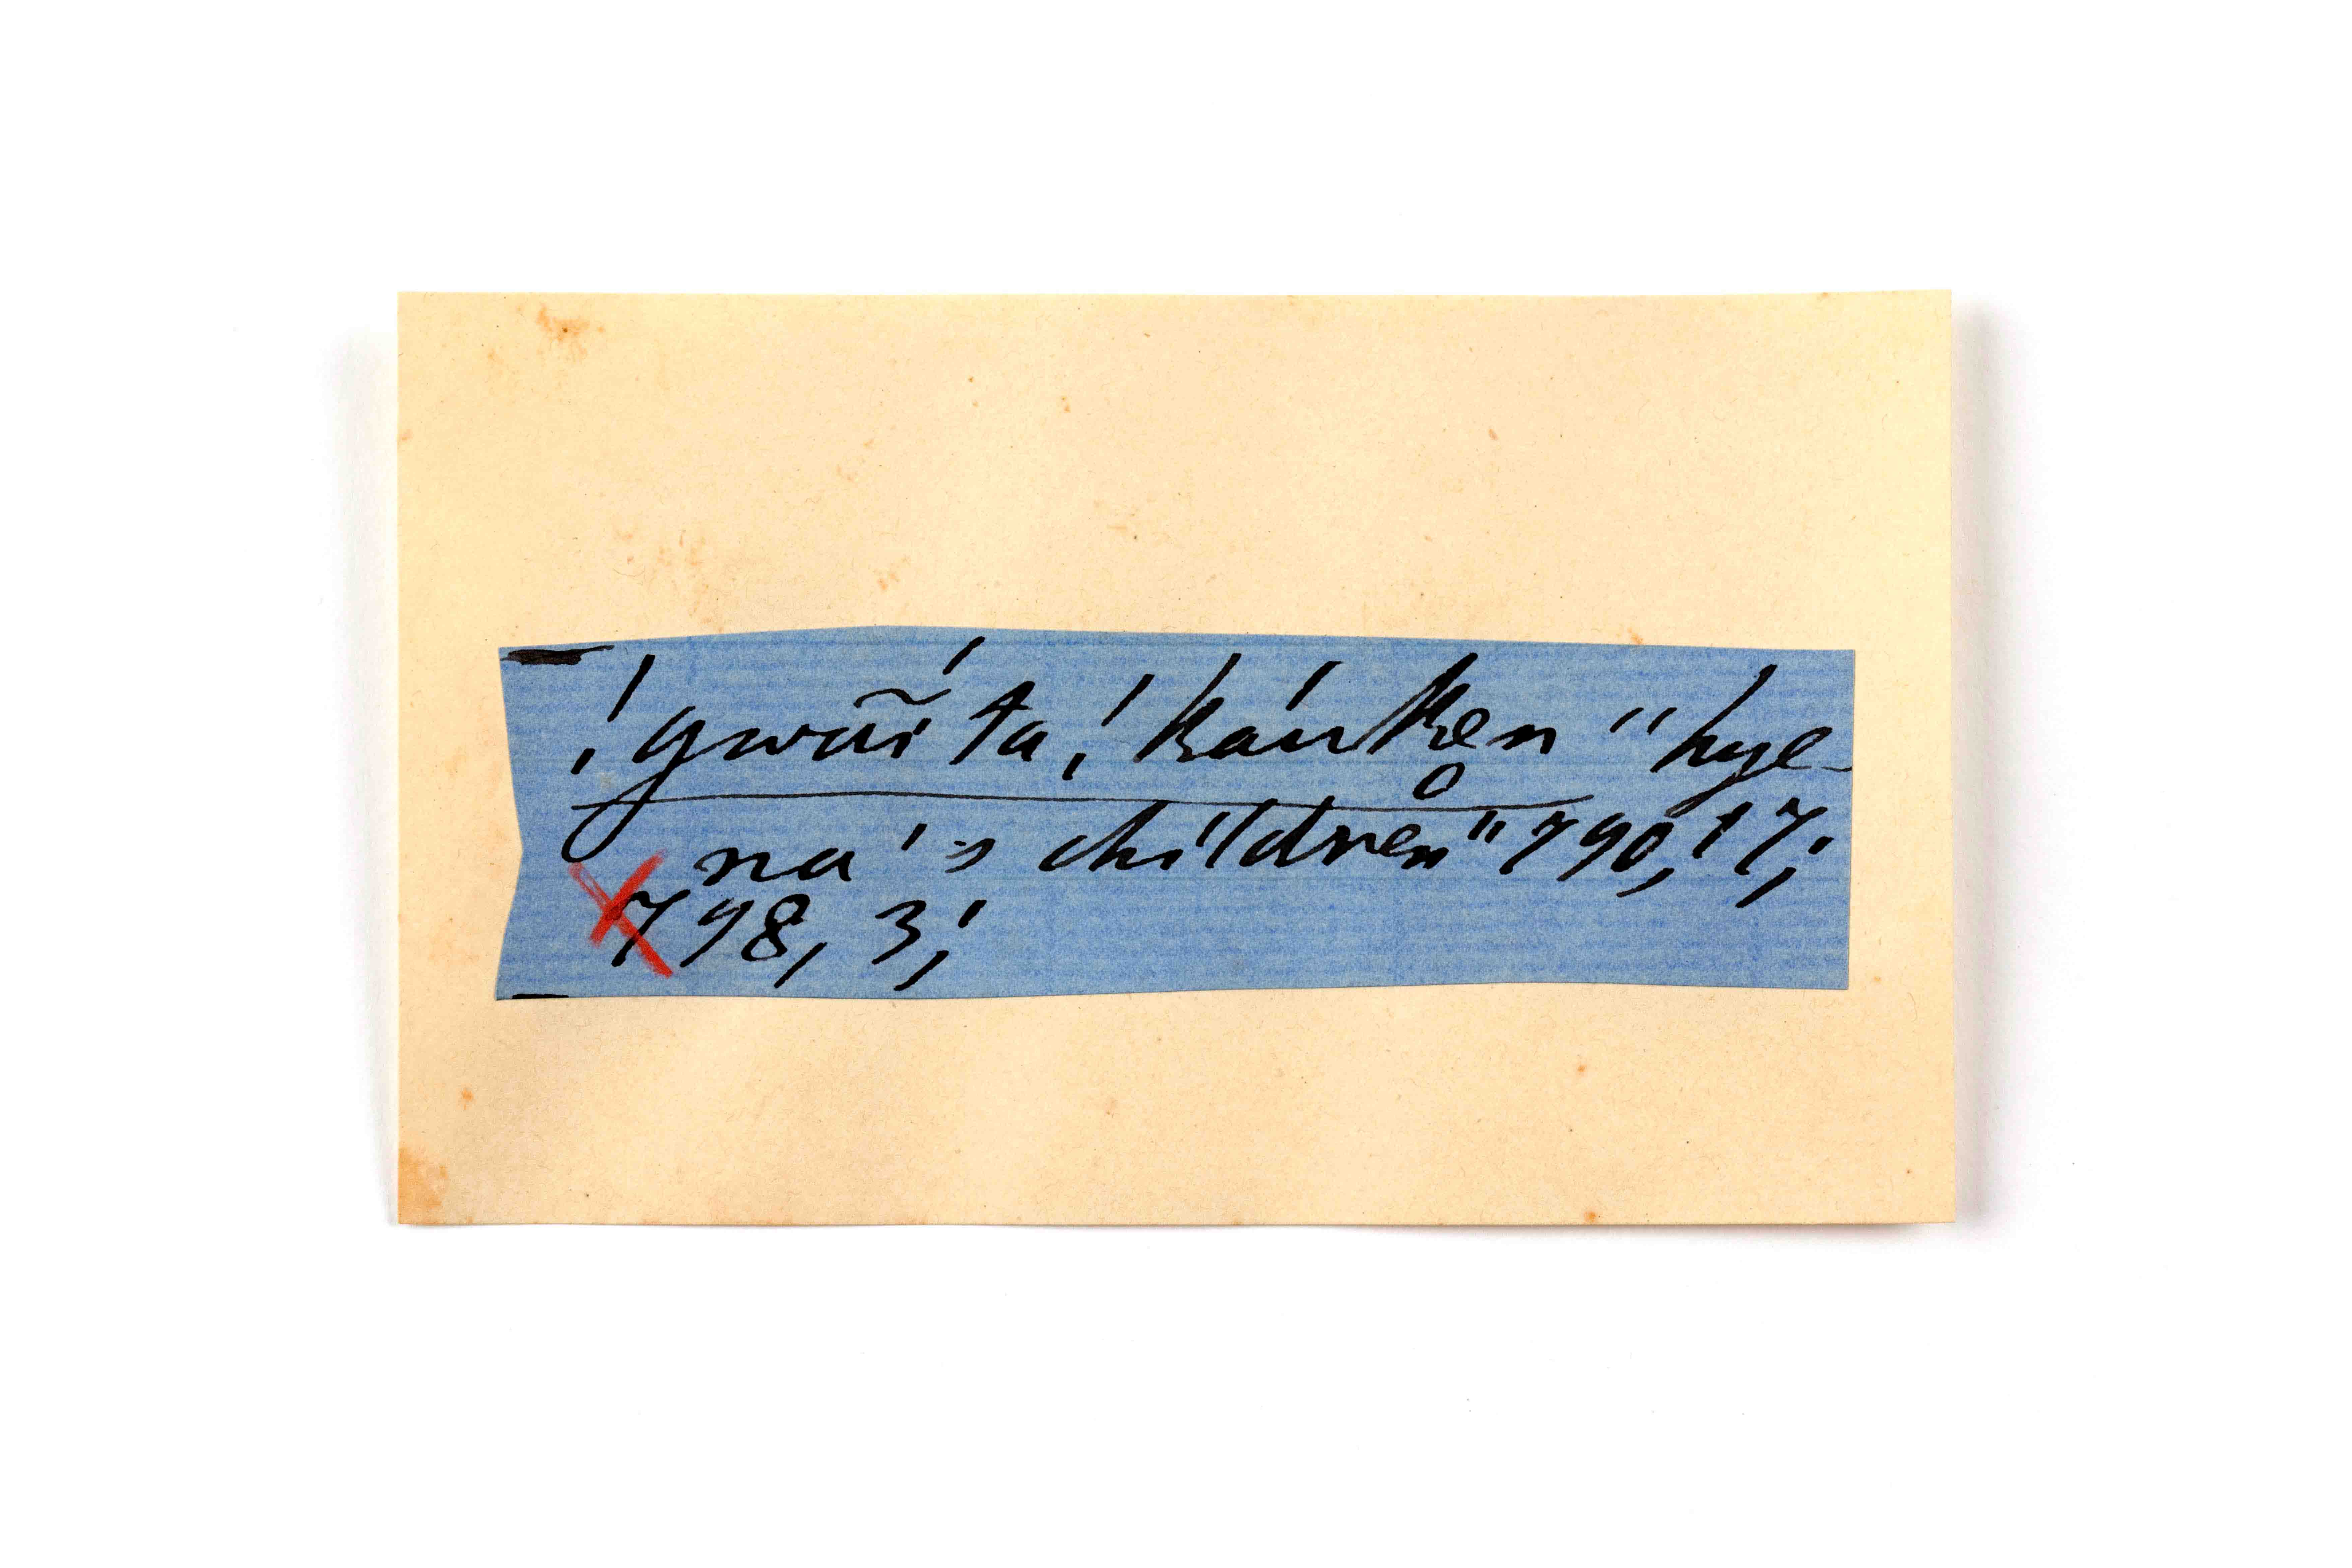 !gwãi ta !káuken̥ "hye-
na's children" 790, 17;
798, 3;